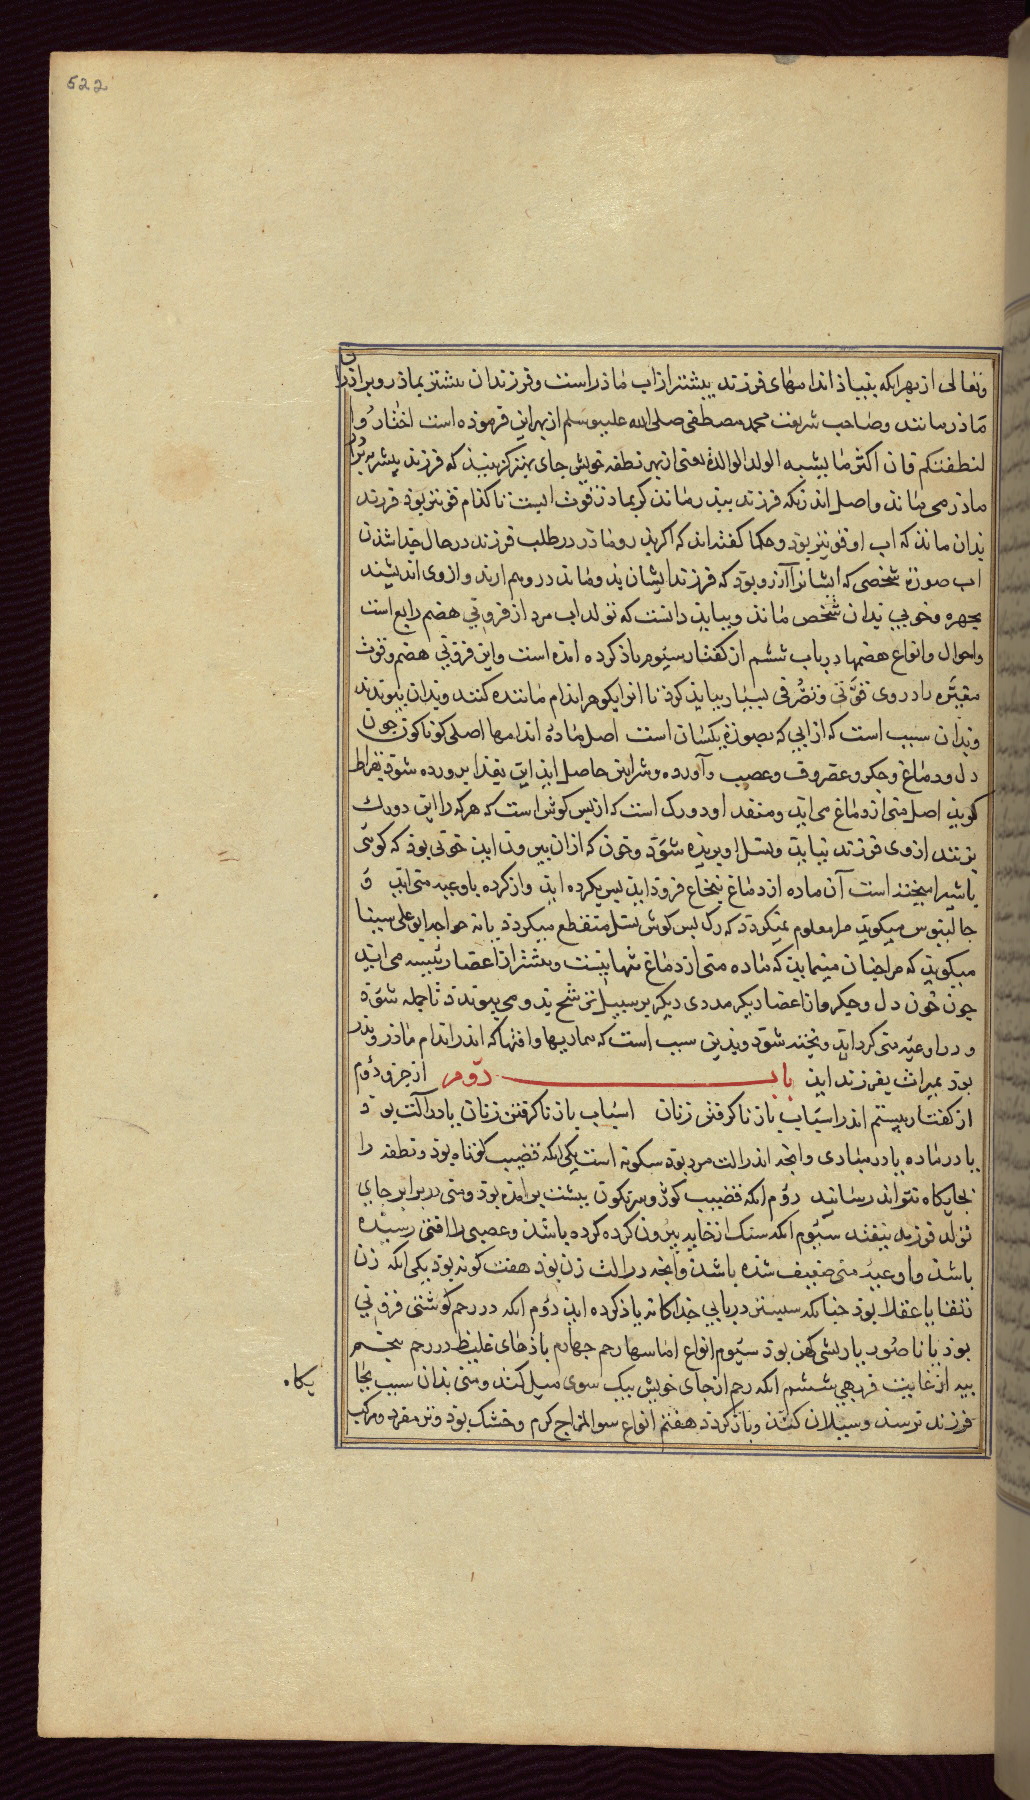 522
وتعالی از بهر انکه بنیاذ اندامهای فرزند بیشتر از اب ماذر است وفرزندان بیشتر بماذر وبراذران
ماذر مانند وصاحب شریعت محمد مصطفی صلی الله علیه وسلم از بهر این فرموذه است اختاروا
لنطفتکم فان اکثر ما یشبه الولد الوالدة یعنی از بهر نطفه خویش جای بهتر کزینیذ که فرزند بیشتر
ماذر می ماند واصل اندر انکه فرزند بپدر ماند کر بماذر قوت است تا کذام قویتر بوذ فرزند
بدان ماند که اب او قویتر بوذ وحکما کفته اند که اکر پدر وماذر در طلب فرزند در حال جدا شذن
اب صورة شخصی که ایشانرا آرزو بوذ که فرزند ایشان بدو ماند در وهم ارند واز وی اندیشند
بچهره وخوبی بدان شخص ماند وببایذ دانست که تولد اب مرد از فزونی هضم رابع است
واحوال وانواع هضمها در باب ششم از کفتار سیوم یاذ کرده امذه است واین فزونی هضم وقوت
مغیّره را در وی قوّتی وتصرّفی بسیار ببایذ کرد تا انرا یکوهر اندام ماننده کنند وبدان پیوندند
وبدان سبب است که از ابی که بصورة یکسان است اصل مادة اندامها اصلی کوناکون چون
دل ودماغ وجکر وغضروف وعصب وآورده وشرایین حاصل ایذ این بغذا پرورده شوذ بقراط
کویذ اصل منی از دماغ می ایذ ومنفذ او دو رک است که از پس کوش است که هر که را این دو رک
بزنند از وی فرزند نیایذ ونسل او بریذه شوذ وخون که ازان بیرون ایذ خونی بوذ که کوئی
باشیر امیخته است آن ماده از دماغ بنخاع فروذ ایذ پس بکرده ایذ واز کرده باوعیه منی ایذ و
جالینوس میکویذ مرا معلوم نمیکردد که رک پس کوش نسل منقطع میکردد یا نه خواجه ابو علی سینا
میکویذ که مرا چنان مینمایذ که ماده منی از دماغ تنها نیست وبیشتر از اعضا رئیسه می ایذ
چون خون دل وجکر واز اعضا دیکر مددی دیکر بر سبیل ترشح بدو می پیوندد تا جمله شوذ
ودر اوعیه منی کرد ایذ وپخته شوذ وبدین سبب است که بیماریها وافتها که اندر اندام ماذر وپذر
بوذ بمیراث بفرزند ایذ باب دوم از جزو دوم
از کفتار بیستم اندر اسباب باز ناکرفتن زنان اسباب باز ناکرفتن زنان یا در آلت بوذ
یا در ماده یا در مبادی وانچه اندر الت مرد بوذ سکونه است یکی انکه قضیب کوتاه بوذ ونطفه را
بجایکاه نتواند رسانید دوم انکه قضیب کوژ وسرنکون بیشت بر امذه بوذ ومنی در برابر جای
تولد فرزند نیفتد سیوم انکه سنک از خایه بیرون کرده کرده باشند وعصبی را افتی رسیذه
باشذ واوعیه منی ضعیف شذه باشذ وانچه در الت زن بوذ هفت کونه بوذ یکی انکه زن
رتقا یا عفلا بوذ چنانکه سپستر در بابی جداکانه یاذ کرده ایذ دوم انکه در رحم کوشتی فزونی
بوذ یا ناصور یا ریشی کهن بوذ سیوم انواع اماسها رحم چهارم باذهای غلیظ در رحم پنجم
پیه از غایت فربهی ششم انکه رحم از جای خویش بیک سوی میل کند ومنی بذان سبب بجا
یکاه
فرزند نرسذ وسیلان کنذ وباز کردد هفتم انواع سوالمزاج کرم وخشک بوذ وتر مفرد ومرکب